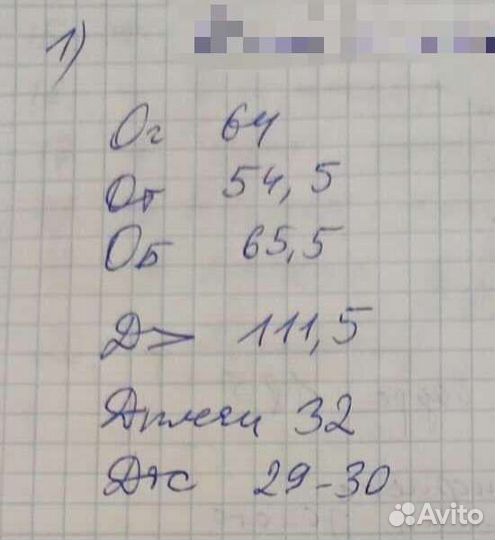 1)
Ог 64
От 54,5
Об 65,5
Д> 111,5
Дплечи 32
Дтс 29-30
Avito